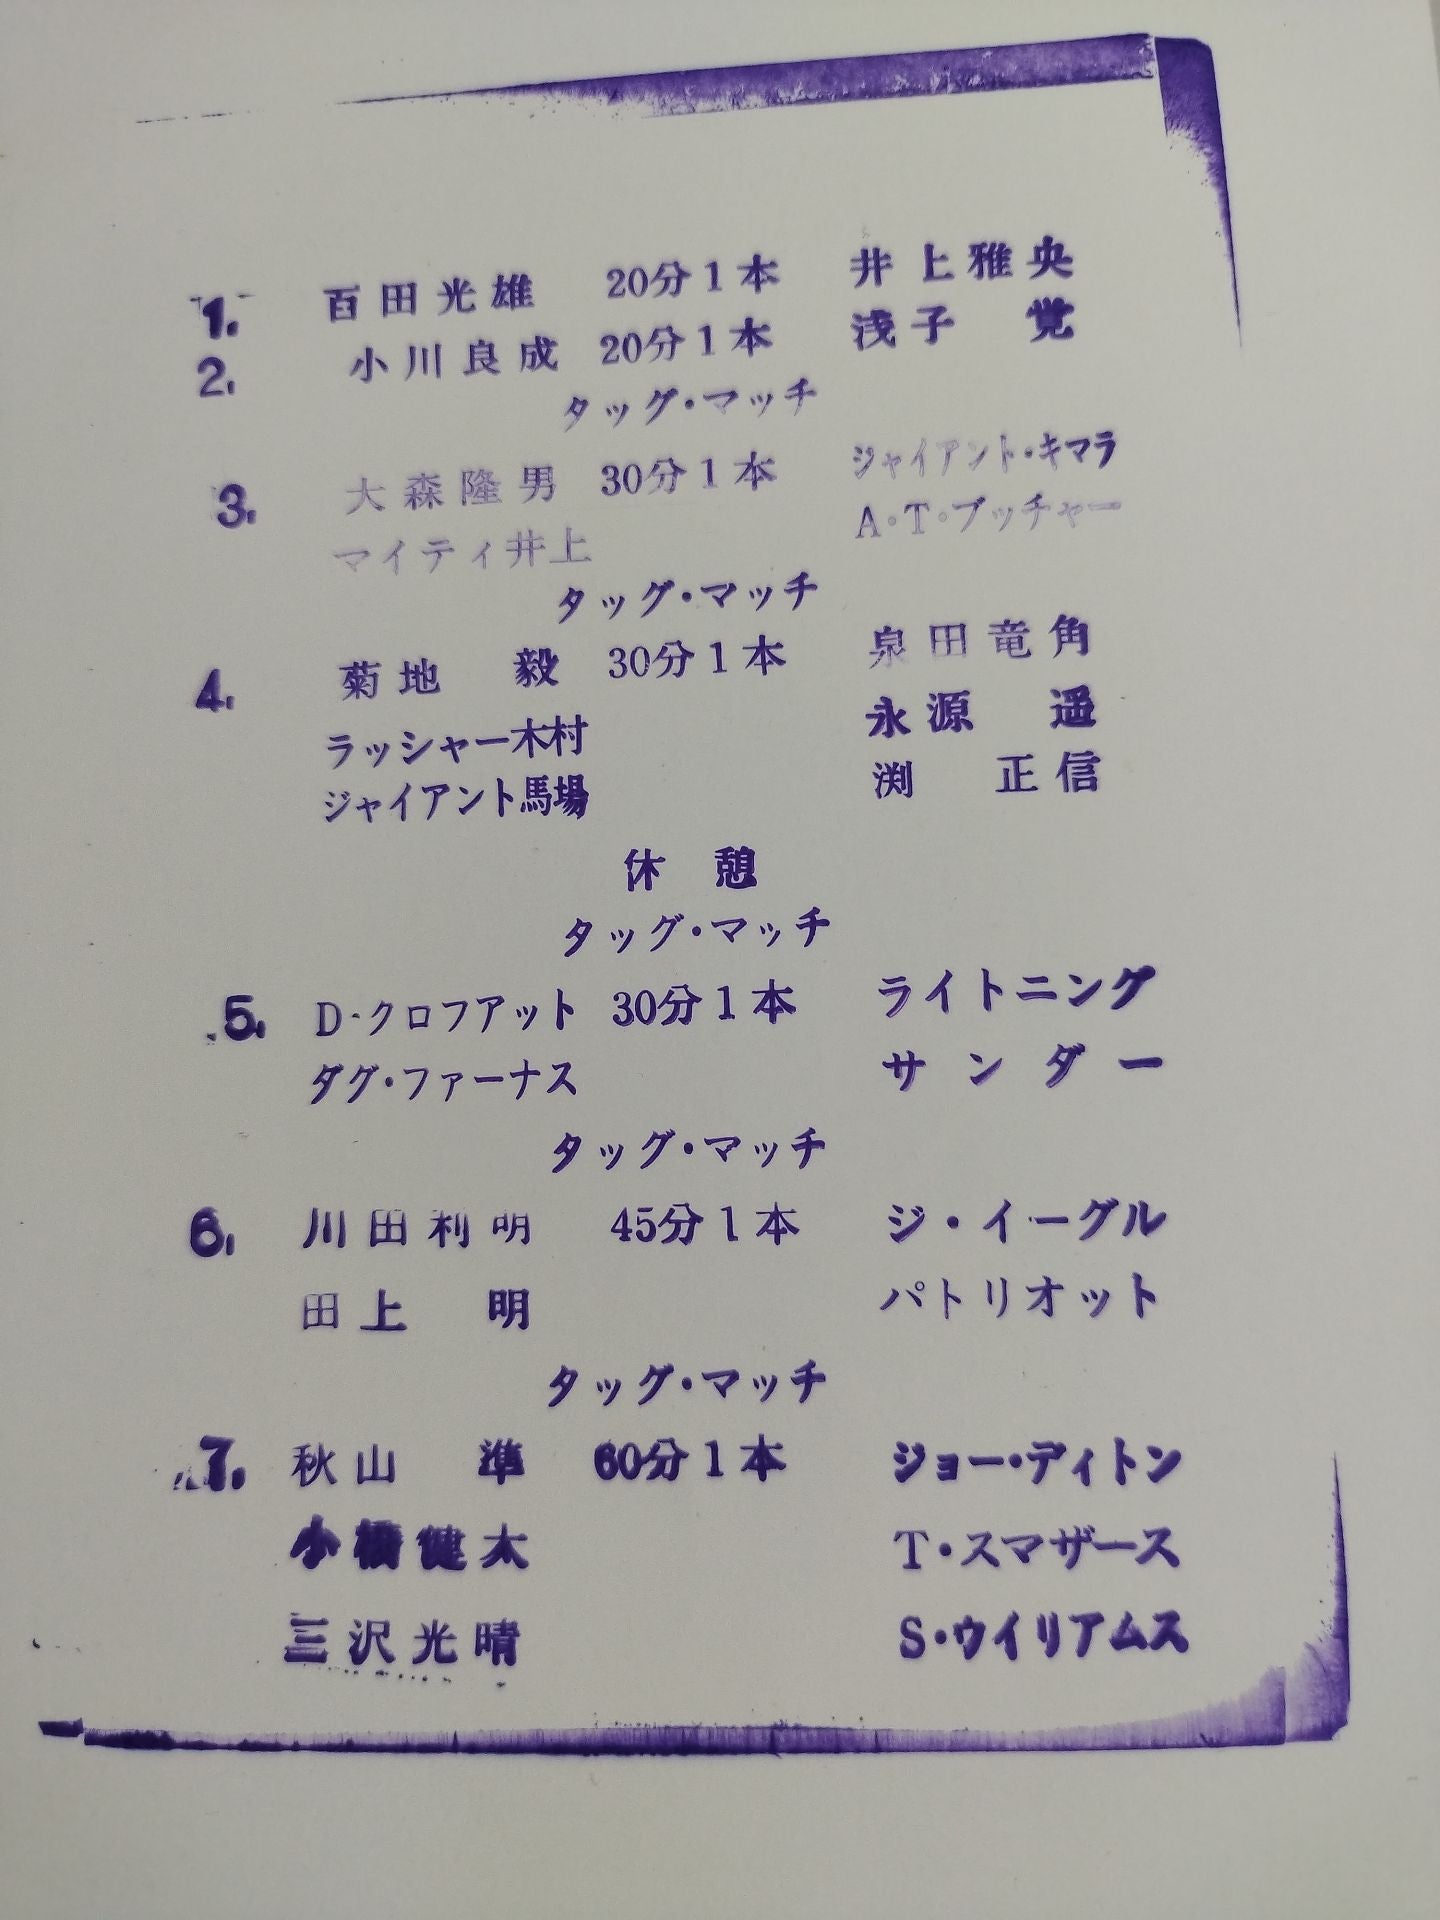 1. 百田光雄 20分1本 井上雅央
2. 小川良成 20分1本 浅子 覚
タッグ・マッチ
3. 大森隆男 30分1本 ジャイアント・キマラ
マイティ井上 A・T・ブッチャー
タッグ・マッチ
4. 菊地 毅 30分1本 泉田竜角
ラッシャー木村 永源 遥
ジャイアント馬場 渕 正信
休憩
タッグ・マッチ
5. D・クロフアット 30分1本 ライトニング
ダグ・ファーナス サンダー
タッグ・マッチ
6. 川田利明 45分1本 ジ・イーグル
田上 明 パトリオット
タッグ・マッチ
7. 秋山 準 60分1本 ジョー・ディトン
小橋健太 T・スマザース
三沢光晴 S・ウイリアムス